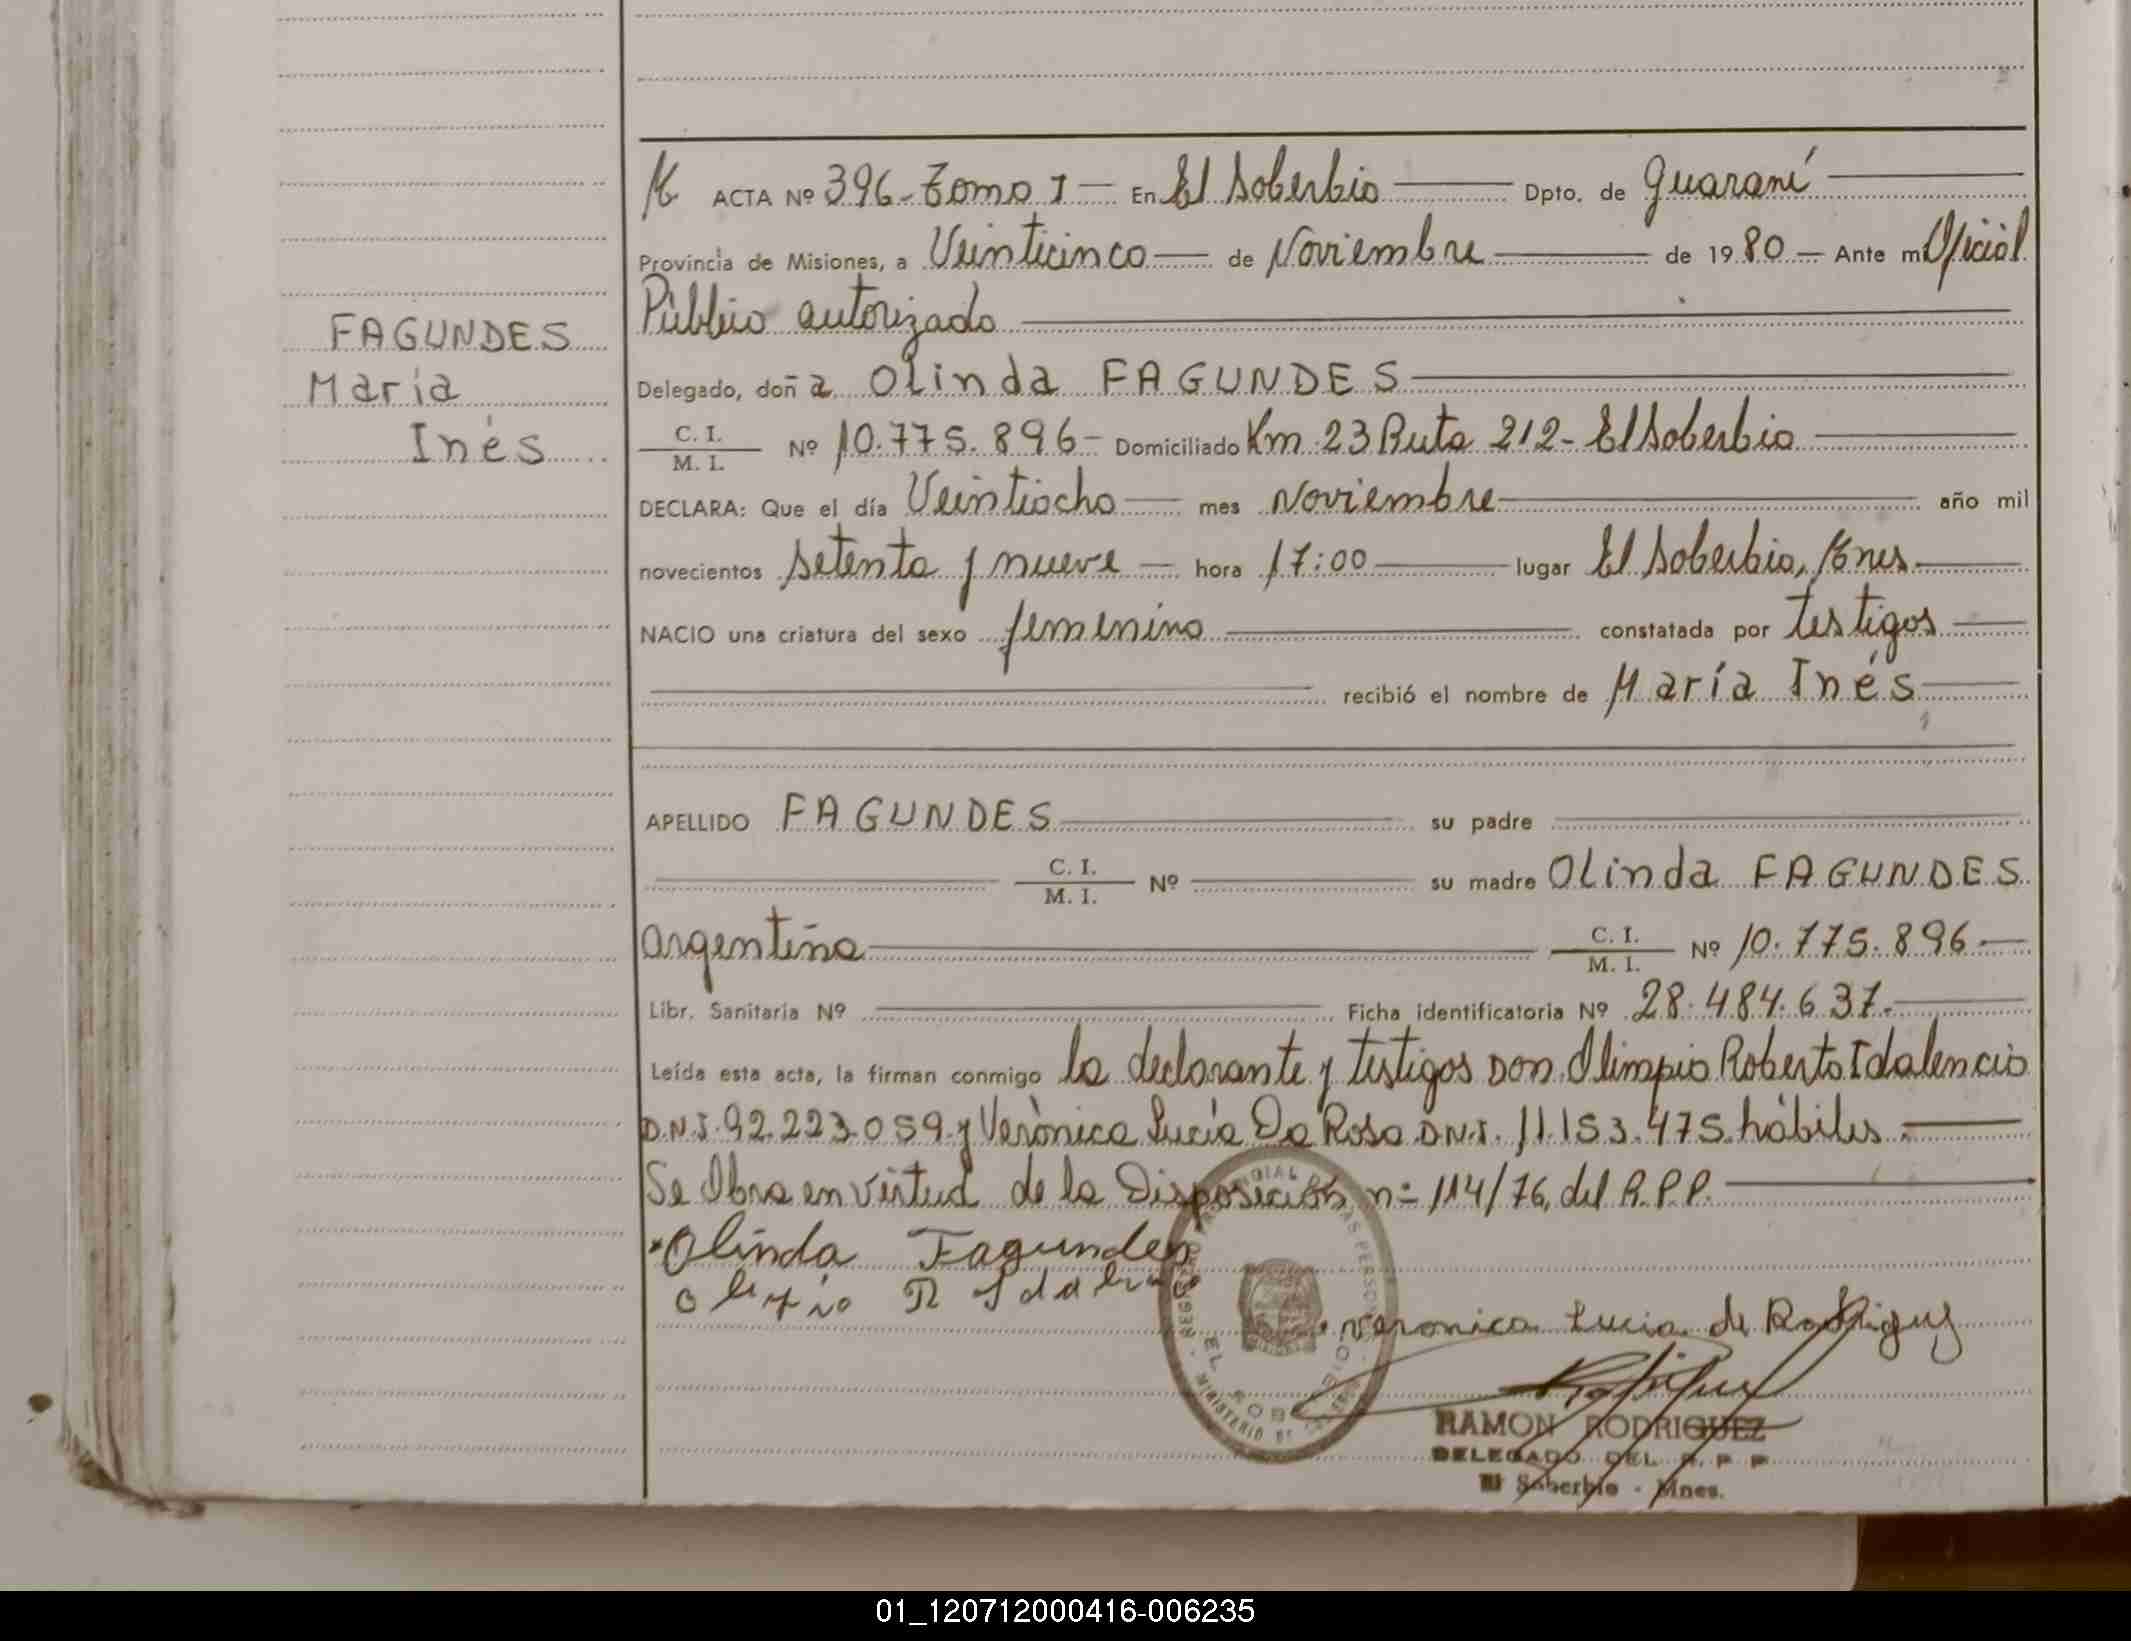 FAGUNDES
María
Inés
ACTA Nº 396 - Tomo I — En El Soberbio — Dpto. de Guaraní —
Provincia de Misiones, a Veinticinco — de Noviembre — de 1980 — Ante mí Oficial
Público autorizado —
Delegado, doña Olinda FAGUNDES —
C. I. / M. I. Nº 10.775.896 - Domiciliado Km 23 Ruta 212 - El Soberbio —
DECLARA: Que el día Veintiocho — mes Noviembre — año mil
novecientos setenta y nueve — hora 17:00 — lugar El Soberbio, Mnes —
NACIO una criatura del sexo femenino — constatada por testigos —
— recibió el nombre de María Inés —
APELLIDO FAGUNDES — su padre —
— C. I. / M. I. Nº — su madre Olinda FAGUNDES
argentina — C. I. / M. I. Nº 10.775.896 —
Libr. Sanitaria Nº — Ficha identificatoria Nº 28.484.637. —
Leída esta acta, la firman conmigo la declarante y testigos Don Olimpio Roberto Idalencio
D.N.I. 92.223.059 y Verónica Lucía Da Rosa D.N.I. 11.153.475 hábiles. —
Se Obra en virtud de la Disposición nº 114/76, del R.P.P. —
Olinda Fagundes
Veronica Lucia de Rodriguez
RAMON RODRIGUEZ
DELEGADO DEL R. P. P.
El Soberbio - Mnes.
01_120712000416-006235